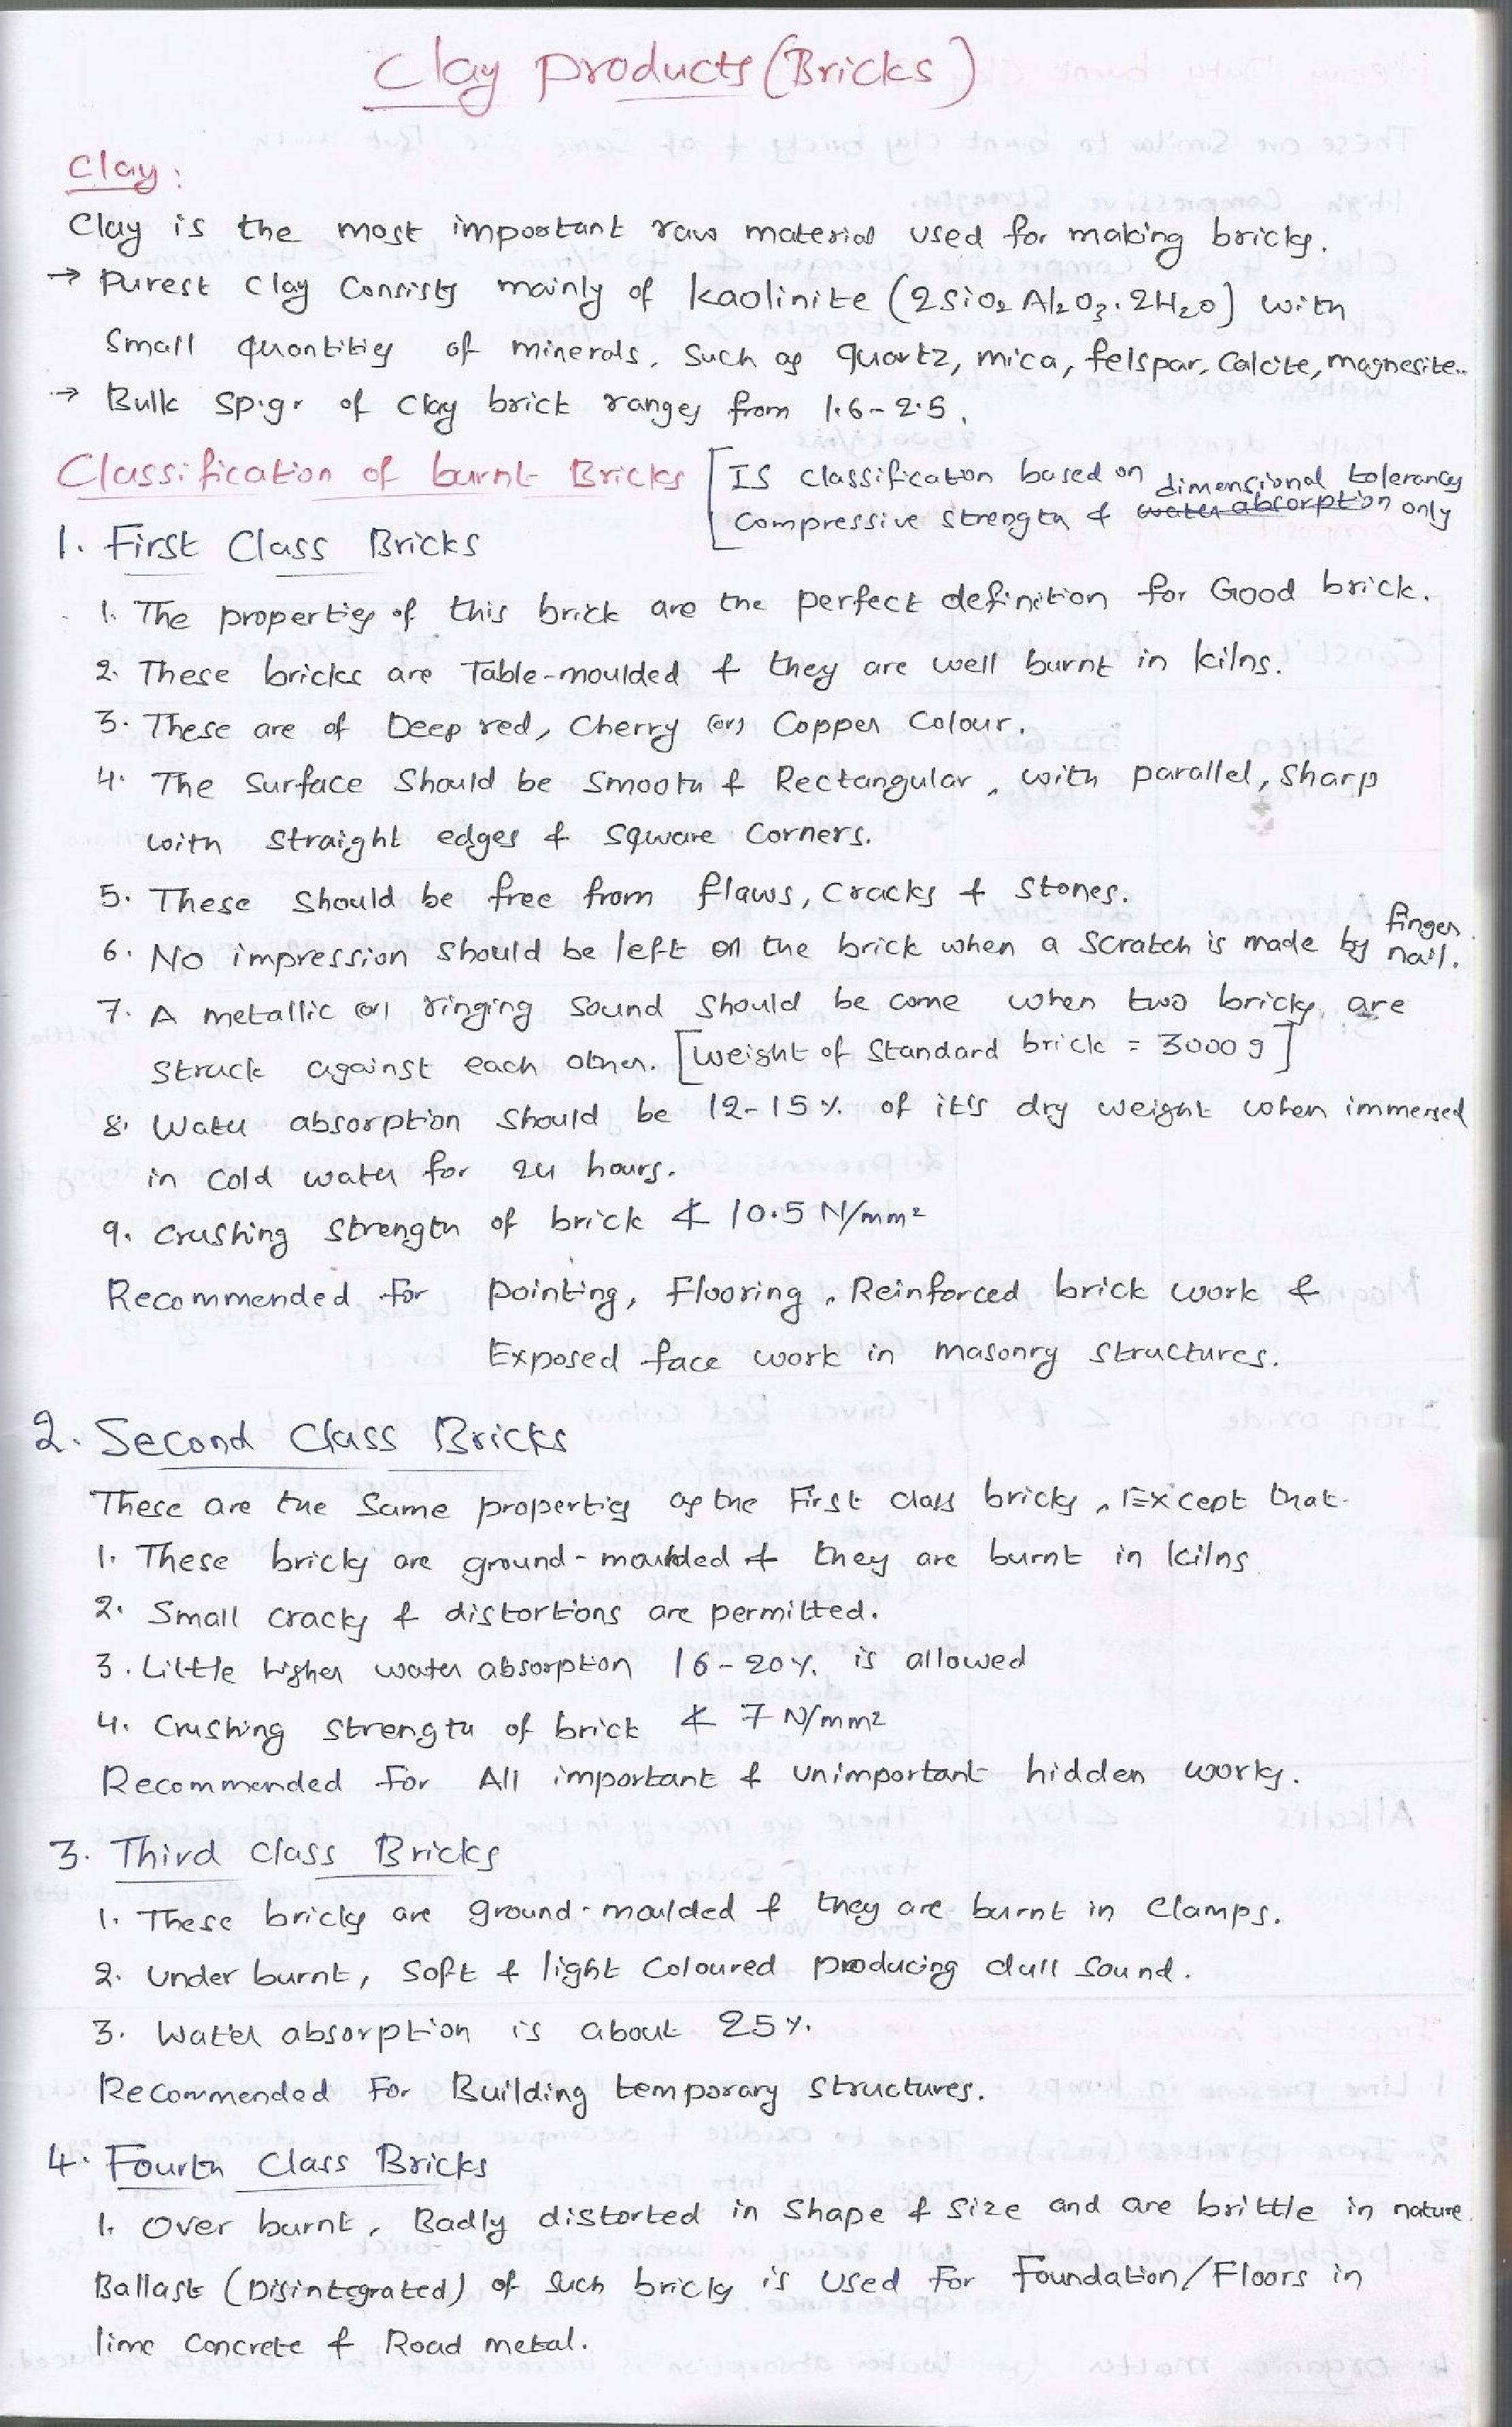 Clay products (Bricks)
Clay:
Clay is the most important raw material used for making bricks.
→ Purest clay consists mainly of kaolinite (2SiO₂ Al₂O₃. 2H₂O) with
small quantities of minerals, such as quartz, mica, felspar, Calcite, magnesite..
→ Bulk sp.gr of clay brick ranges from 1.6-2.5.
Classification of burnt Bricks [IS classification based on dimensional tolerances
compressive strength & water absorption only
1. First Class Bricks
1. The properties of this brick are the perfect definition for Good brick.
2. These bricks are Table-moulded & they are well burnt in kilns.
3. These are of Deep red, Cherry (or) Copper Colour.
4. The surface should be smooth & Rectangular, with parallel, sharp
with straight edges & square corners.
5. These should be free from flaws, cracks & stones.
6. No impression should be left on the brick when a scratch is made by finger nail.
7. A metallic (or) ringing sound should be come when two bricks are
struck against each other. [weight of standard brick = 3000 g]
8. Water absorption should be 12-15% of it's dry weight when immersed
in cold water for 24 hours.
9. Crushing strength of brick ≮ 10.5 N/mm²
Recommended for pointing, Flooring, Reinforced brick work &
Exposed face work in masonry structures.
2. Second Class Bricks
These are the same properties as the First class bricks, Except that
1. These bricks are ground-moulded & they are burnt in kilns
2. Small cracks & distortions are permitted.
3. Little higher water absorption 16-20% is allowed
4. Crushing strength of brick ≮ 7 N/mm²
Recommended for All important & unimportant hidden works.
3. Third class Bricks
1. These bricks are ground-moulded & they are burnt in clamps.
2. Under burnt, soft & light coloured producing dull sound.
3. Water absorption is about 25%.
Recommended For Building temporary structures.
4. Fourth Class Bricks
1. Over burnt, Badly distorted in shape & size and are brittle in nature.
Ballast (Disintegrated) of such bricks is used for Foundation/Floors in
lime concrete & Road metal.